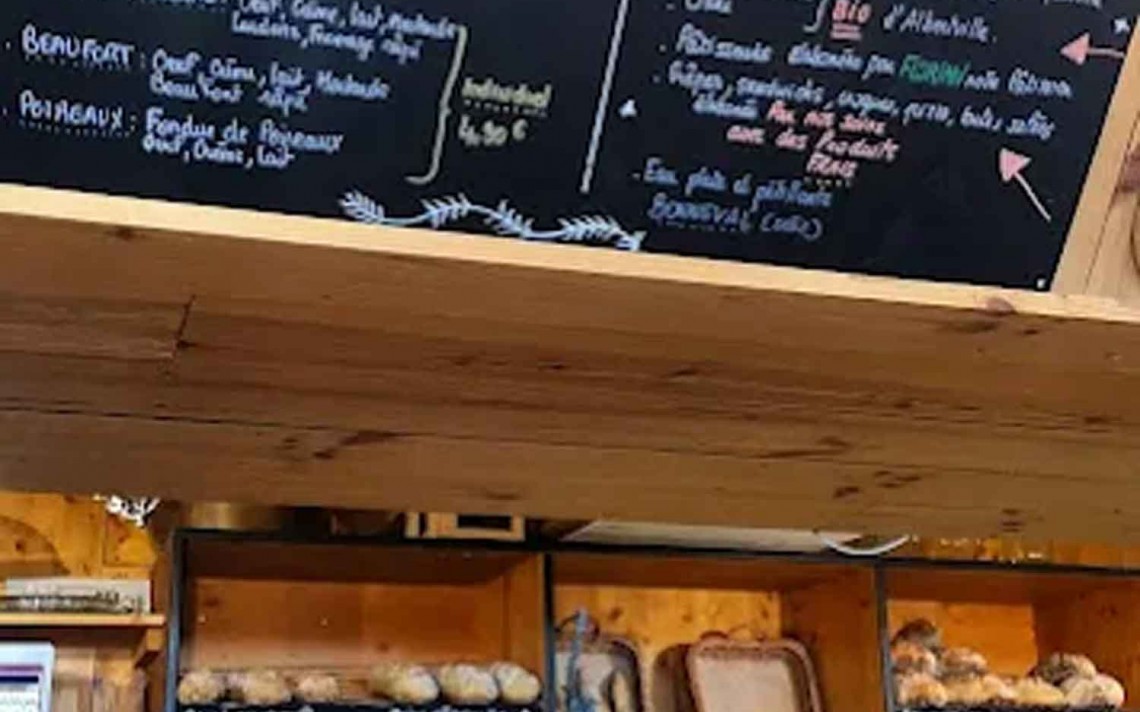 Oeuf, Crème, lait, Moutarde
Lardons, Fromage râpé
. BEAUFORT : Oeuf, Crème, lait, Moutarde
Beaufort râpé
. POIREAUX : Fondue de Poireaux
Oeuf, Crème, lait
Individuel
4,90 €
Bio d'Albertville.
. Pâtisseries élaborées par FLORIAN notre Pâtissier
. Crêpes, sandwichs, croques, pizza, tartes salées
élaborés Par nos soins
avec des Produits
FRAIS
. Eau plate et pétillante
BONNEVAL